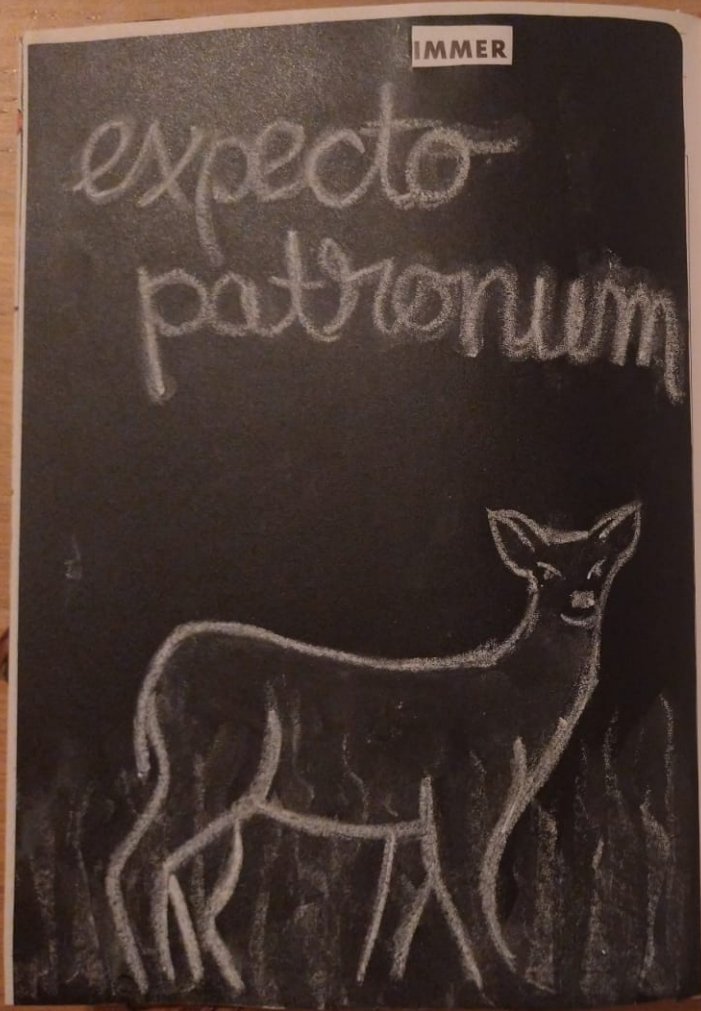 IMMER
expecto
patronum